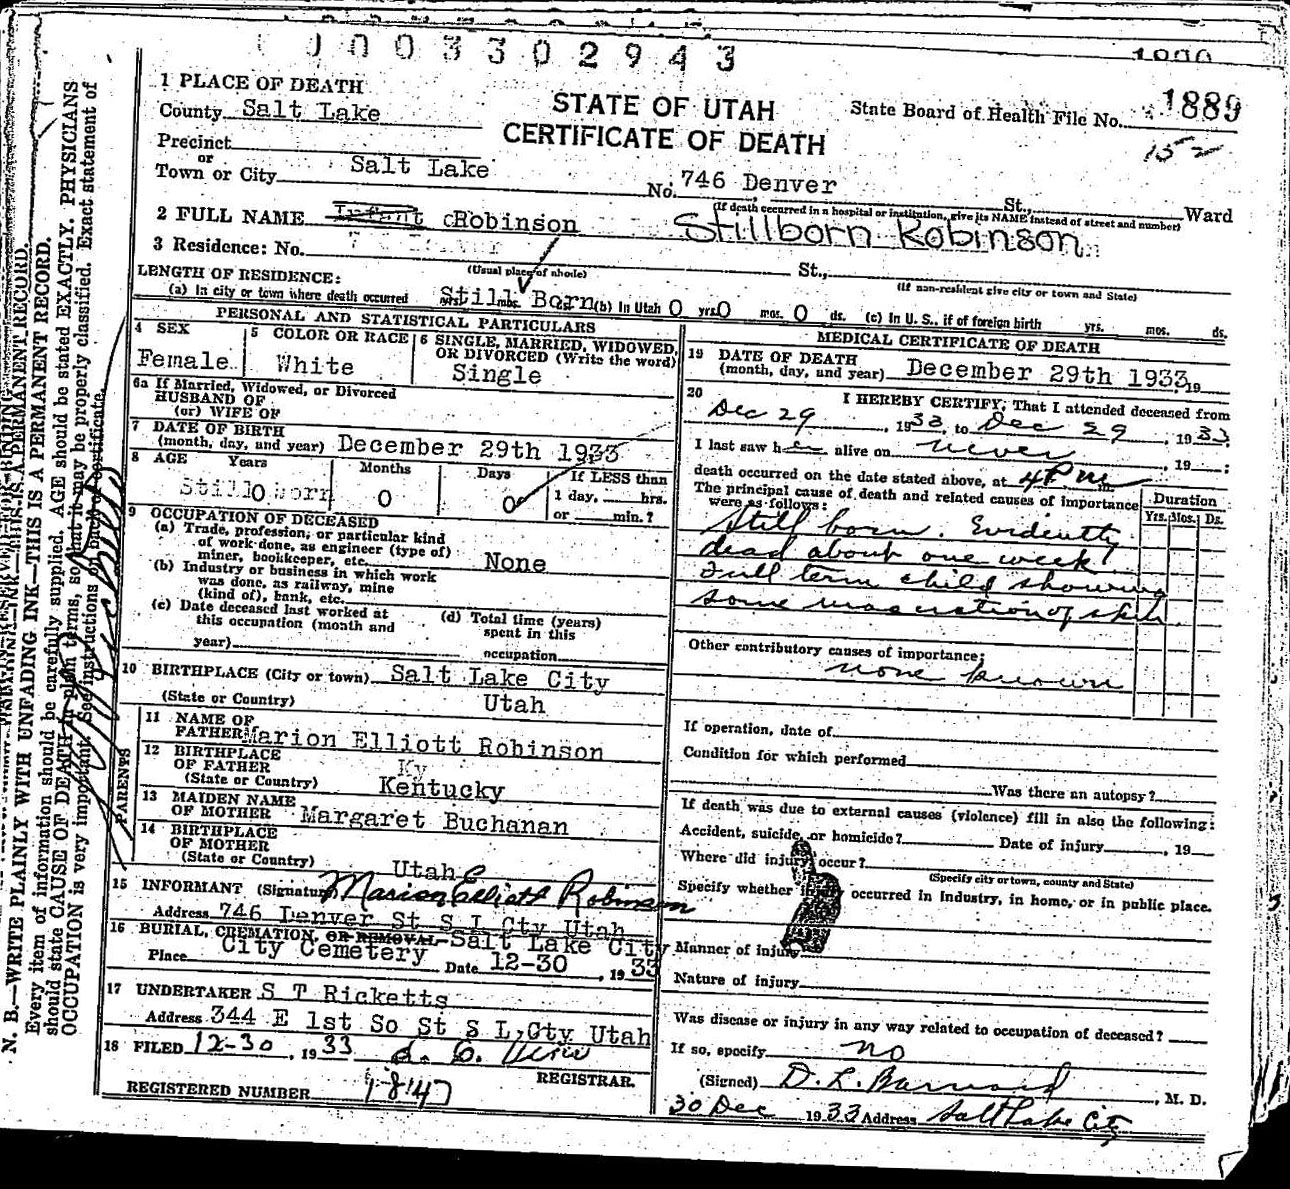 0003302943
1 PLACE OF DEATH
County Salt Lake
STATE OF UTAH
CERTIFICATE OF DEATH
State Board of Health File No. 1889
152
Precinct
or
Town or City Salt Lake
No. 746 Denver St., Ward
(If death occurred in a hospital or institution, give its NAME instead of street and number)
2 FULL NAME Infant Robinson Stillborn Robinson
3 Residence: No. St.,
(Usual place of abode) (If non-resident give city or town and State)
LENGTH OF RESIDENCE:
(a) In city or town where death occurred Still Born yrs. mos. ds. (b) In Utah 0 yrs. 0 mos. 0 ds. (c) In U. S., if of foreign birth yrs. mos. ds.
PERSONAL AND STATISTICAL PARTICULARS
4 SEX Female
5 COLOR OR RACE White
6 SINGLE, MARRIED, WIDOWED, OR DIVORCED (Write the word) Single
6a If Married, Widowed, or Divorced
HUSBAND OF
(or) WIFE OF
7 DATE OF BIRTH
(month, day, and year) December 29th 1933
8 AGE Years Months Days If LESS than
Still born 0 0 0 1 day, hrs.
or min.?
9 OCCUPATION OF DECEASED
(a) Trade, profession, or particular kind
of work done, as engineer (type of)
miner, bookkeeper, etc. None
(b) Industry or business in which work
was done, as railway, mine
(kind of), bank, etc.
(c) Date deceased last worked at
this occupation (month and
year)
(d) Total time (years)
spent in this
occupation
10 BIRTHPLACE (City or town) Salt Lake City
(State or Country) Utah
PARENTS
11 NAME OF
FATHER Marion Elliott Robinson
12 BIRTHPLACE
OF FATHER Ky
(State or Country) Kentucky
13 MAIDEN NAME
OF MOTHER Margaret Buchanan
14 BIRTHPLACE
OF MOTHER
(State or Country) Utah
15 INFORMANT (Signature) Marion Elliott Robinson
Address 746 Denver St S L Cty Utah
16 BURIAL, CREMATION, OR REMOVAL Salt Lake City
Place City Cemetery Date 12-30, 1933
17 UNDERTAKER S T Ricketts
Address 344 E 1st So St S L Cty Utah
18 FILED 12-30, 1933
REGISTRAR.
REGISTERED NUMBER 1847
MEDICAL CERTIFICATE OF DEATH
19 DATE OF DEATH
(month, day, and year) December 29th 1933 19
20 I HEREBY CERTIFY, That I attended deceased from
Dec 29, 1933, to Dec 29, 1933.
I last saw her alive on never, 19 ;
death occurred on the date stated above, at 4 P m
The principal cause of death and related causes of importance
were as follows:
Duration
Yrs. Mos. Ds.
Still born. Evidently
dead about one week
Full term child showing
some maceration of skin.
Other contributory causes of importance:
none known
If operation, date of
Condition for which performed
Was there an autopsy?
If death was due to external causes (violence) fill in also the following:
Accident, suicide, or homicide? Date of injury, 19
Where did injury occur?
(Specify city or town, county and State)
Specify whether injury occurred in industry, in home, or in public place.
Manner of injury
Nature of injury
Was disease or injury in any way related to occupation of deceased?
If so, specify no
(Signed) D. L. Barnard, M. D.
30 Dec 1933 Address Salt Lake City
N. B.—WRITE PLAINLY WITH UNFADING INK—THIS IS A PERMANENT RECORD.
Every item of information should be carefully supplied. AGE should be stated EXACTLY. PHYSICIANS
should state CAUSE OF DEATH in plain terms, so that it may be properly classified. Exact statement of
OCCUPATION is very important. See instructions on back of certificate.